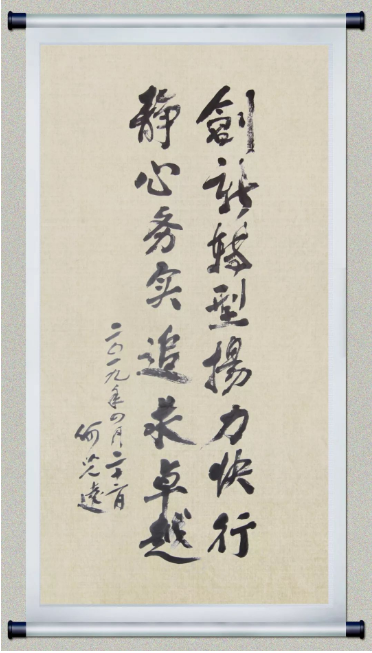 創新轉型揚力快行
静心务实追求卓越
二〇一九年四月二十日
何光遠